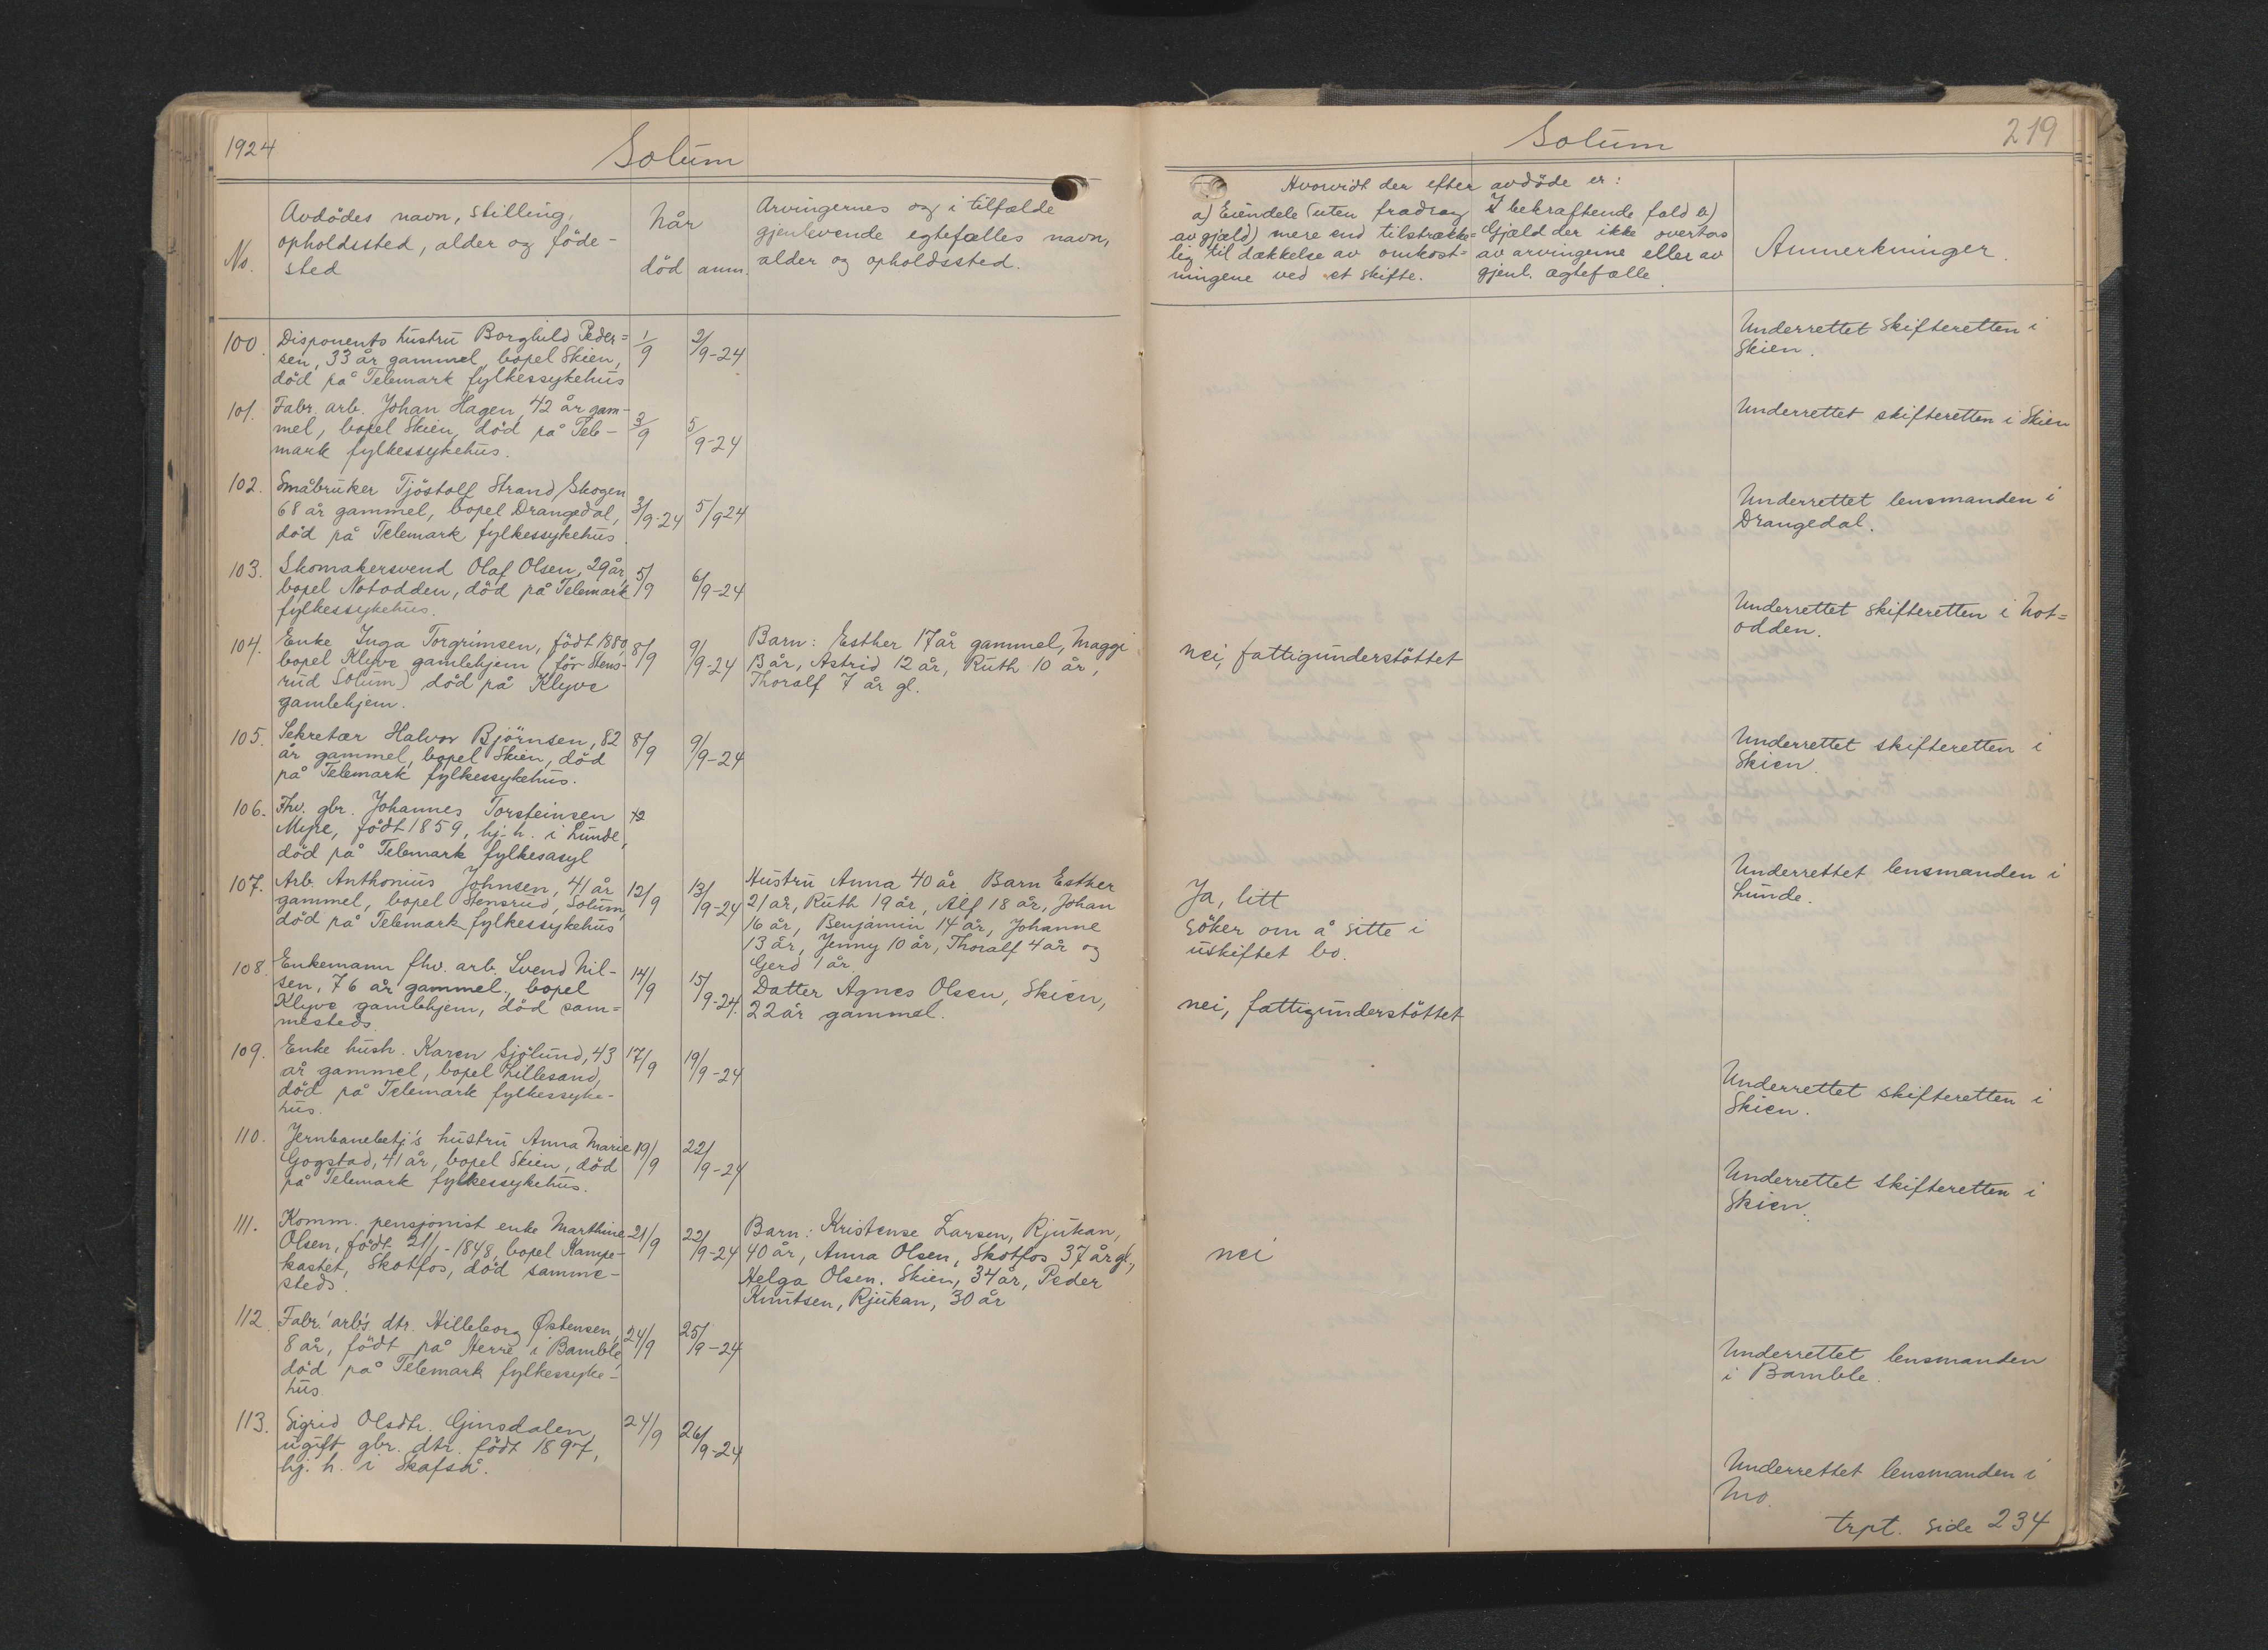 1924
Solum
No.
Avdödes navn, stilling,
opholdssted, alder og föde-
sted
når
död anm.
Arvingernes og i tilfælde
gjenlevende egtefælles navn,
alder og opholdssted.
100. Disponents hustru Borghild Peder=
sen, 33 år gammel, bopel Skien,
död på Telemark fylkessykehus
1/9
2/9-24
101. Fabr. arb. Johan Hagen, 42 år gam-
mel, bopel Skien, död på Tele-
mark fylkessykehus.
3/9
5/9-24
102. Småbruker Tjöstolf Strand/Skogen
68 år gammel, bopel Drangedal,
död på Telemark fylkessykehus.
3/9-24
5/9-24
103. Skomakersvend Olaf Olsen, 29 år,
bopel Notodden, död på Telemark
fylkessykehus.
5/9
6/9-24
104. Enke Inga Torgrimsen, födt 1880,
bopel Klyve gamlehjem (för Stens-
rud Solum) död på Klyve
gamlehjem.
8/9
9/9-24
Barn: Esther 17 år gammel, Maggi
13 år, Astrid 12 år, Ruth 10 år,
Thoralf 7 år gl.
105. Sekretær Halvor Björnsen, 82
år gammel, bopel Skien, död
på Telemark fylkessykehus.
8/9
9/9-24
106. Fhv. gbr. Johannes Torsteinsen
Myre, födt 1859, hj.h. i Lunde,
död på Telemark fylkesasyl
107. Arb. Anthonius Johnsen, 41 år
gammel, bopel Stensrud, Solum,
död på Telemark fylkessykehus
12/9
13/9-24
Hustru Anna 40 år. Barn Esther
21 år, Ruth 19 år, Alf 18 år, Johan
16 år, Benjamin 14 år, Johanne
13 år, Jenny 10 år, Thoralf 4 år og
Gerd 1 år.
108. Enkemann fhv. arb. Svend Nil-
sen, 76 år gammel, bopel
Klyve gamlehjem, död sam=
mesteds.
14/9
15/9-24.
Datter Agnes Olsen, Skien,
22 år gammel.
109. Enke hush. Karen Sjölund, 43
år gammel, bopel Lillesand,
död på Telemark fylkessyke-
hus.
17/9
19/9-24
110. Jernbanebetj's hustru Anna Marie
Gogstad, 41 år, bopel Skien, död
på Telemark fylkessykehus.
19/9
22/9-24
111. Komm. pensjonist enke Marthine
Olsen, födt 21/1-1848, bopel Kampe-
kastet, Skotfos, död samme-
steds.
21/9
22/9-24
Barn: Kristense Larsen, Rjukan,
40 år, Anna Olsen, Skotfos 37 år gl.,
Helga Olsen. Skien, 34 år, Peder
Knutsen, Rjukan, 30 år
112. Fabr. arb's dtr. Hilleborg Østensen,
8 år, födt på Herre i Bamble,
död på Telemark fylkessyke-
hus.
24/9
25/9-24
113. Sigrid Olsdtr. Ginsdalen,
ugift gbr. dtr. födt 1897,
hj. h. i Skafså.
24/9
26/9-24
Solum
219
Hvorvidt der efter avdöde er:
a) Eiendele (uten fradrag
av gjæld) mere end tilstrække=
lig til dækkelse av omkost=
ningene ved et skifte.
I bekræftende fald b)
Gjæld der ikke overtas
av arvingerne eller av
gjenl. ægtefælle.
Anmerkninger.
Underrettet skifteretten i
Skien.
Underrettet skifteretten i Skien
Underrettet lensmanden i
Drangedal.
Underrettet skifteretten i Not=
odden.
nei, fattigunderstöttet
Underrettet skifteretten i
Skien.
Underrettet lensmanden i
Lunde.
Ja, litt
söker om å sitte i
uskiftet bo.
nei, fattigunderstöttet
Underrettet skifteretten i
Skien.
Underrettet skifteretten i
Skien.
nei
Underrettet lensmanden
i Bamble.
Underrettet lensmanden i
Mo.
trpt. side 234